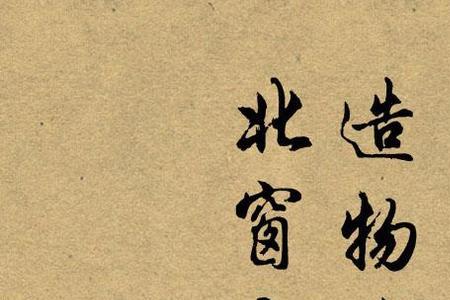 造物
北窗